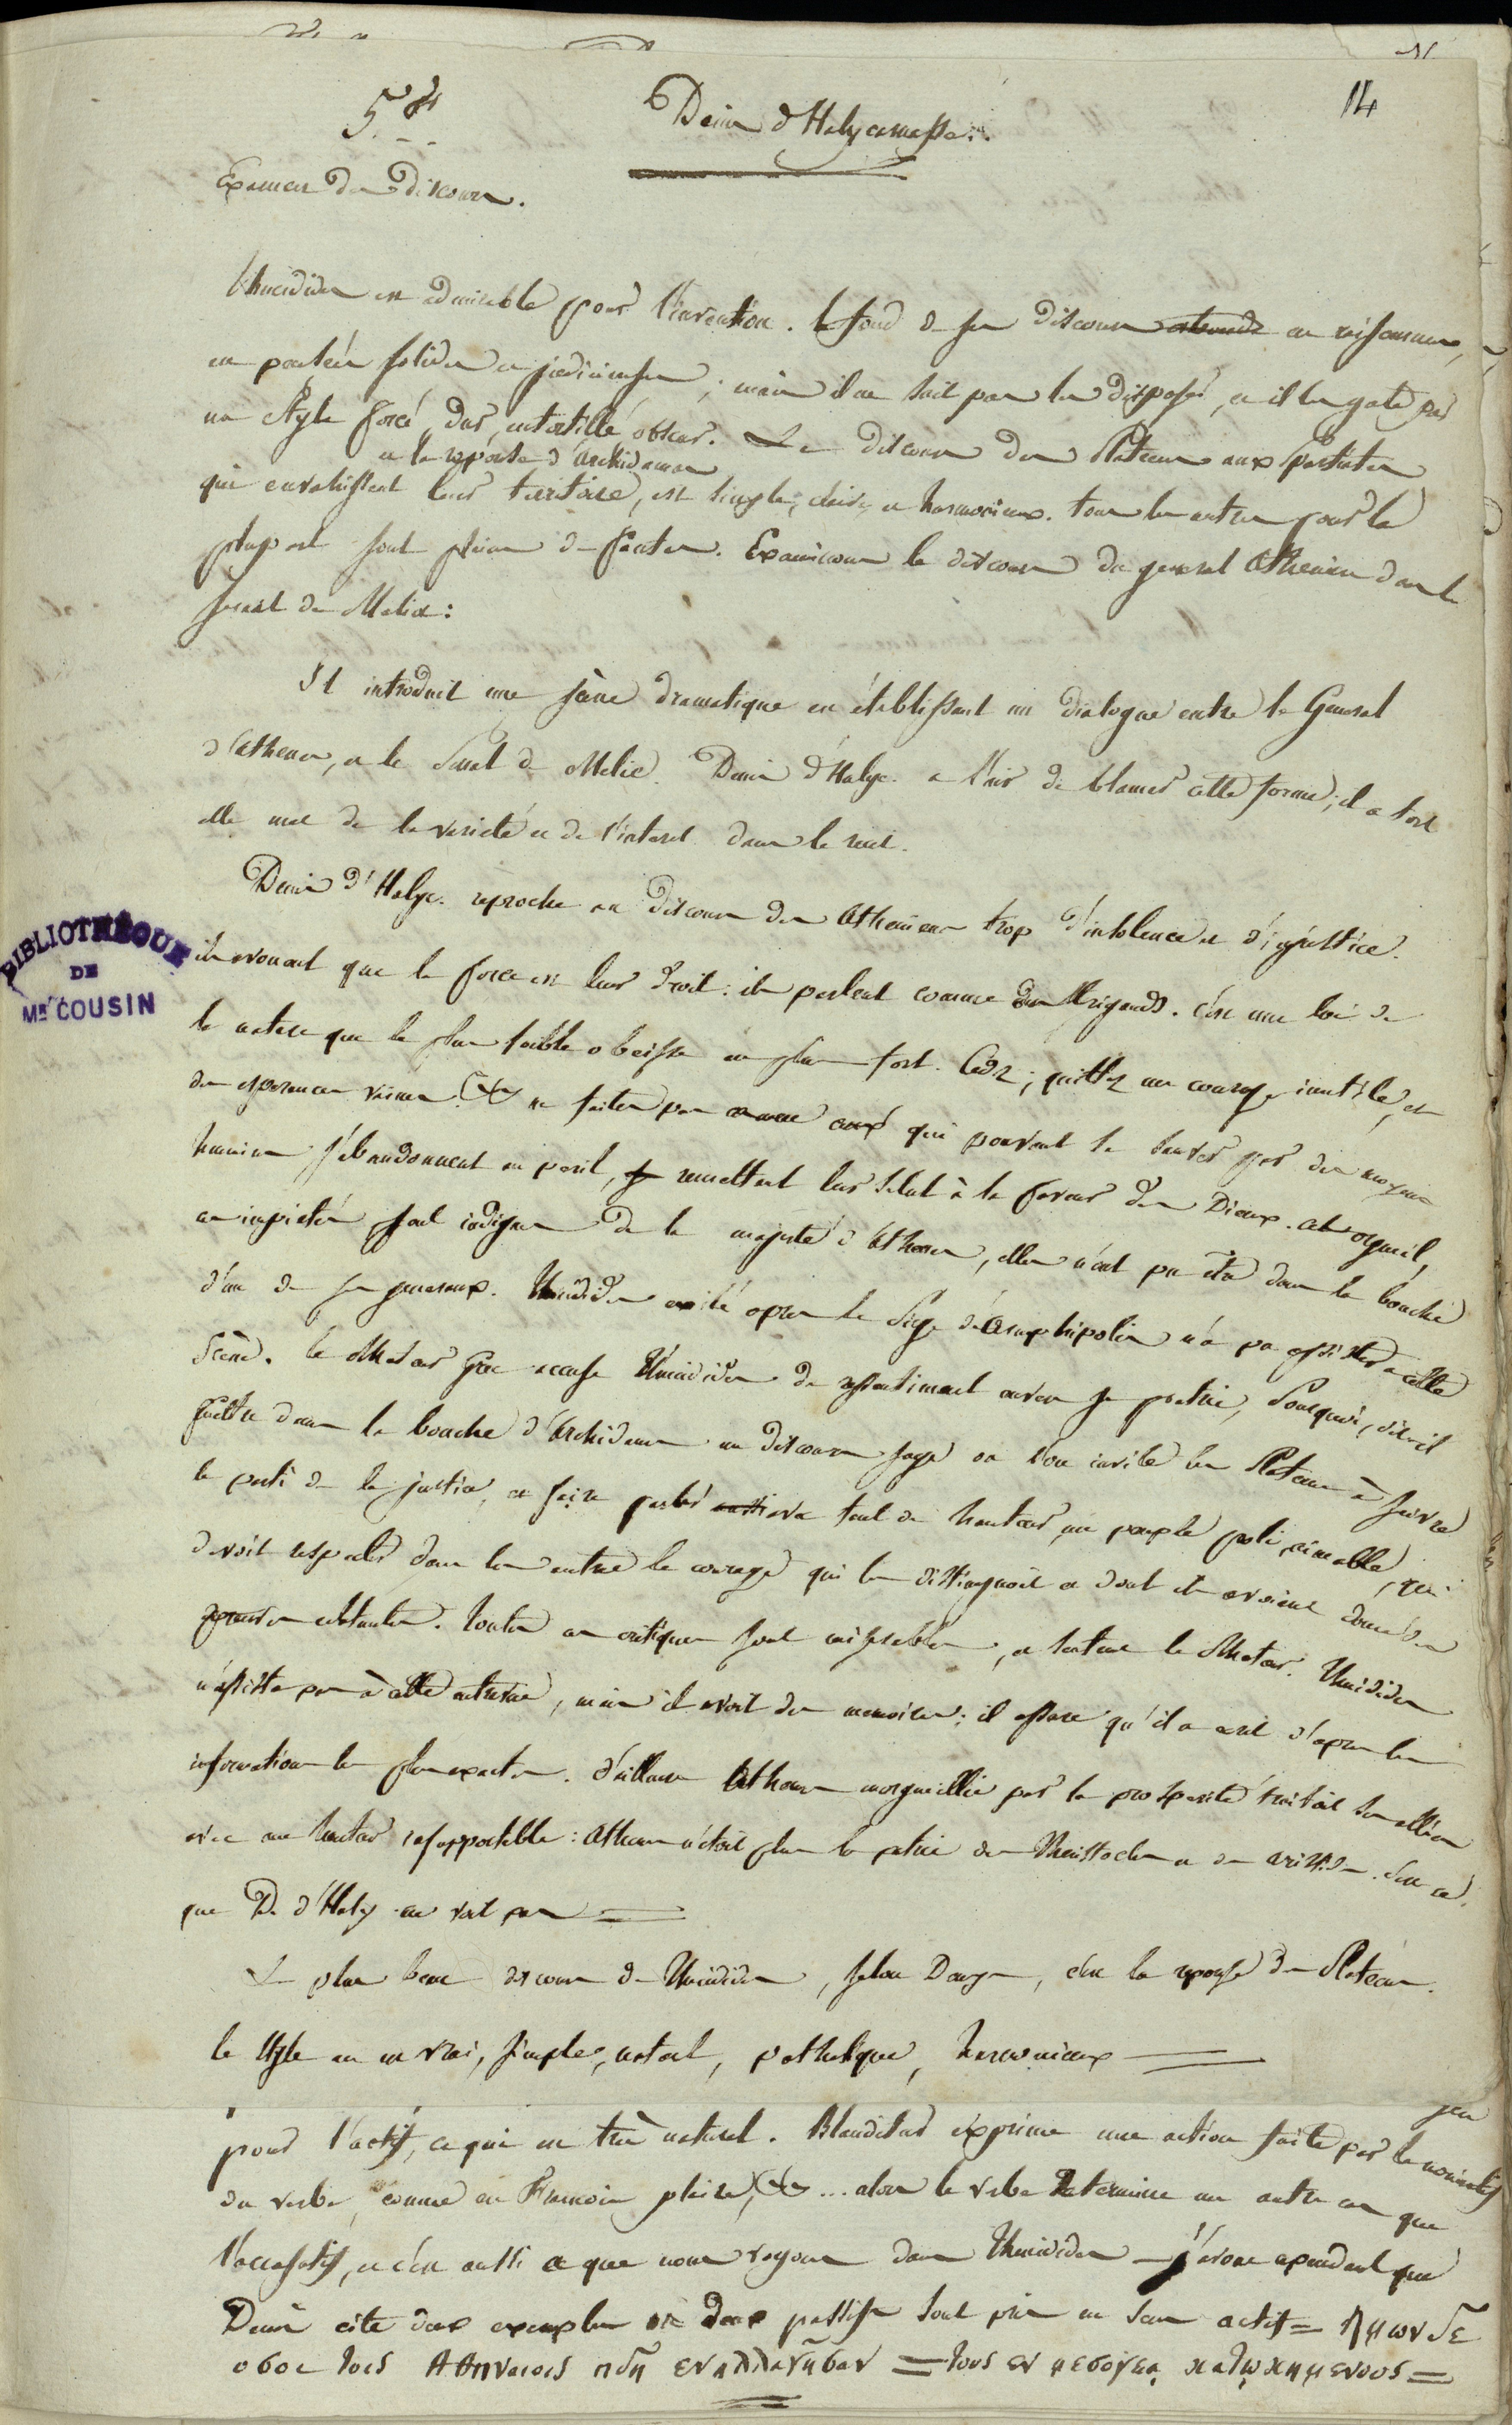 14
5.e
Denis d'Halycarnasse.
Examen des discours.
Thucidides est admirable pour l'invention. le fond de ses discours en raisonnemens,
en pensées solides et judicieuses ; mais il ne sait pas les disposer, et il les gate par
un style forcé, dur, entortillé, obscur. Le discours des Plateens aux spartiates
et la réponse d'Archidamus
qui envahissent leur territoire, est simple, clair, et harmonieux. tous les autres pour la
plupart sont pleins de fautes. Examinons le discours du general Athenien dans le
senat de Melie :
Il introduit une scène dramatique en établissant un dialogue entre le General
d'Athenes, et le Senat de Melie. Denis d'Halyc. a l'air de blamer cette forme ; il a tort
elle met de la varieté et de l'interet dans le recit.
Denis d'Halyc. reproche au discours des Atheniens trop d'insolence et d'injustice.
BIBLIOTHÈQUE
DE
MR COUSIN
ils avouent que la force est leur droit : ils parlent comme des brigands. c'est une loi de
la nature que le plus faible obeisse au plus fort. Cédez ; quittez un courage inutile, et
des esperances vaines. &c ne faites pas comme ceux qui pouvant se sauver par des moyens
humains s'abandonnent au peril, remettent leur salut à la faveur des Dieux. cet orgueil,
ces impietés sont indignes de la majesté d'Athenes, elles n'ont pu être dans la bouche
d'un de ses generaux. Thucidides exilé apres le siege d'Amphipolis n'a pu assister à cette
scène. le Rheteur grec accuse Thucidides de ressentiment envers sa patrie, Pourquoi, dit-il
mettre dans la bouche d'Archidamus un discours sage où l'on invite les Plateens à suivre
le parti de la justice, et faire parler avec tant de hauteur, un peuple poli, aimable, qui
devoit respecter dans les autres le courage qui les distinguoit et dont ils avoient donné des
preuves eclatantes. toutes ces critiques sont miserables, et sentent le Rheteur. Thucidides
n'assista pas à cette entrevue, mais il avoit des memoires ; il assure qu'il a ecrit d'apres les
informations les plus exactes. d'ailleurs Athenes enorgueillie par la prosperité traitoit ses alliés
avec une hauteur insupportable : Athenes n'étoit plus la patrie des Themistocles et des Aristides. C'est ce
que D. d'Haly. ne voit pas =
Le plus beau discours de Thucidides, selon Denys, c'est la reponse des Plateens.
le style en est vrai, simple, naturel, pathetique, harmonieux =
pour l'actif, ce qui est très naturel. Blanditur exprime une action faite par le nominatif
du verbe, comme en François plaire, &c ... alors le verbe determine un autre cas que
l'accusatif, et c'est aussi ce que nous voyons dans Thucidides — j'avoue cependant que
Denis cite deux exemples où deux passifs sont pris au sens actif = ημων δε
οσοι τοις Αθηναιοις ηδη ενηλλαγησαν = τους εν μεσογεια κατωκημενους =